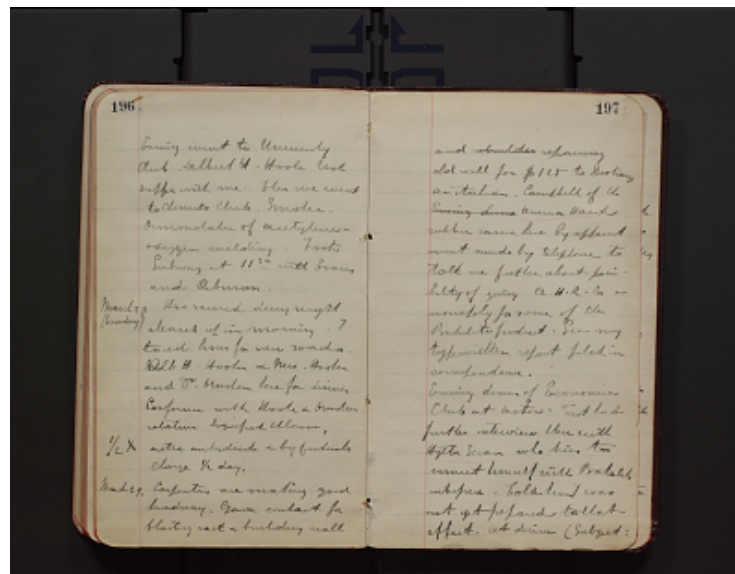 196
Evening went to University
Club. Albert H. Hooker had
supper with me. Then we went
to Chemists Club. Smoker.
Demonstration of acetylene-
oxygen welding. Took
Subway at 11 20 with Evans
and
March 28 Has rained during night
(Sunday) cleared up in morning. I
lines for new roads.
Alb. H. Hooker & Mrs. Hooker
and Dr. here for dinner
Conference with Hooker &
relative liquified Chlorine,
1/2 X anhydride & by products
charge 1/2 day.
March 29. Carpenters are making good
headway. Gave contract for
blasting rock & building wall
197
and rebuilding repairing
old wall for $125 to
an Italian. Campbell of the
Evening dinner
rubber came here by appoint
ment made by telephone to
talk me further about possi-
bility of giving A.H.R. Co a
monopoly for some of the
Bakelite product. See my
typewritten report filed in
correspondence.
Evening dinner of Economics
Club at Astors. First had
further interview there with
who tries to
himself with Bakelite
enterprise. Told him I was
not yet prepared to that
effect. At dinner (Subject: